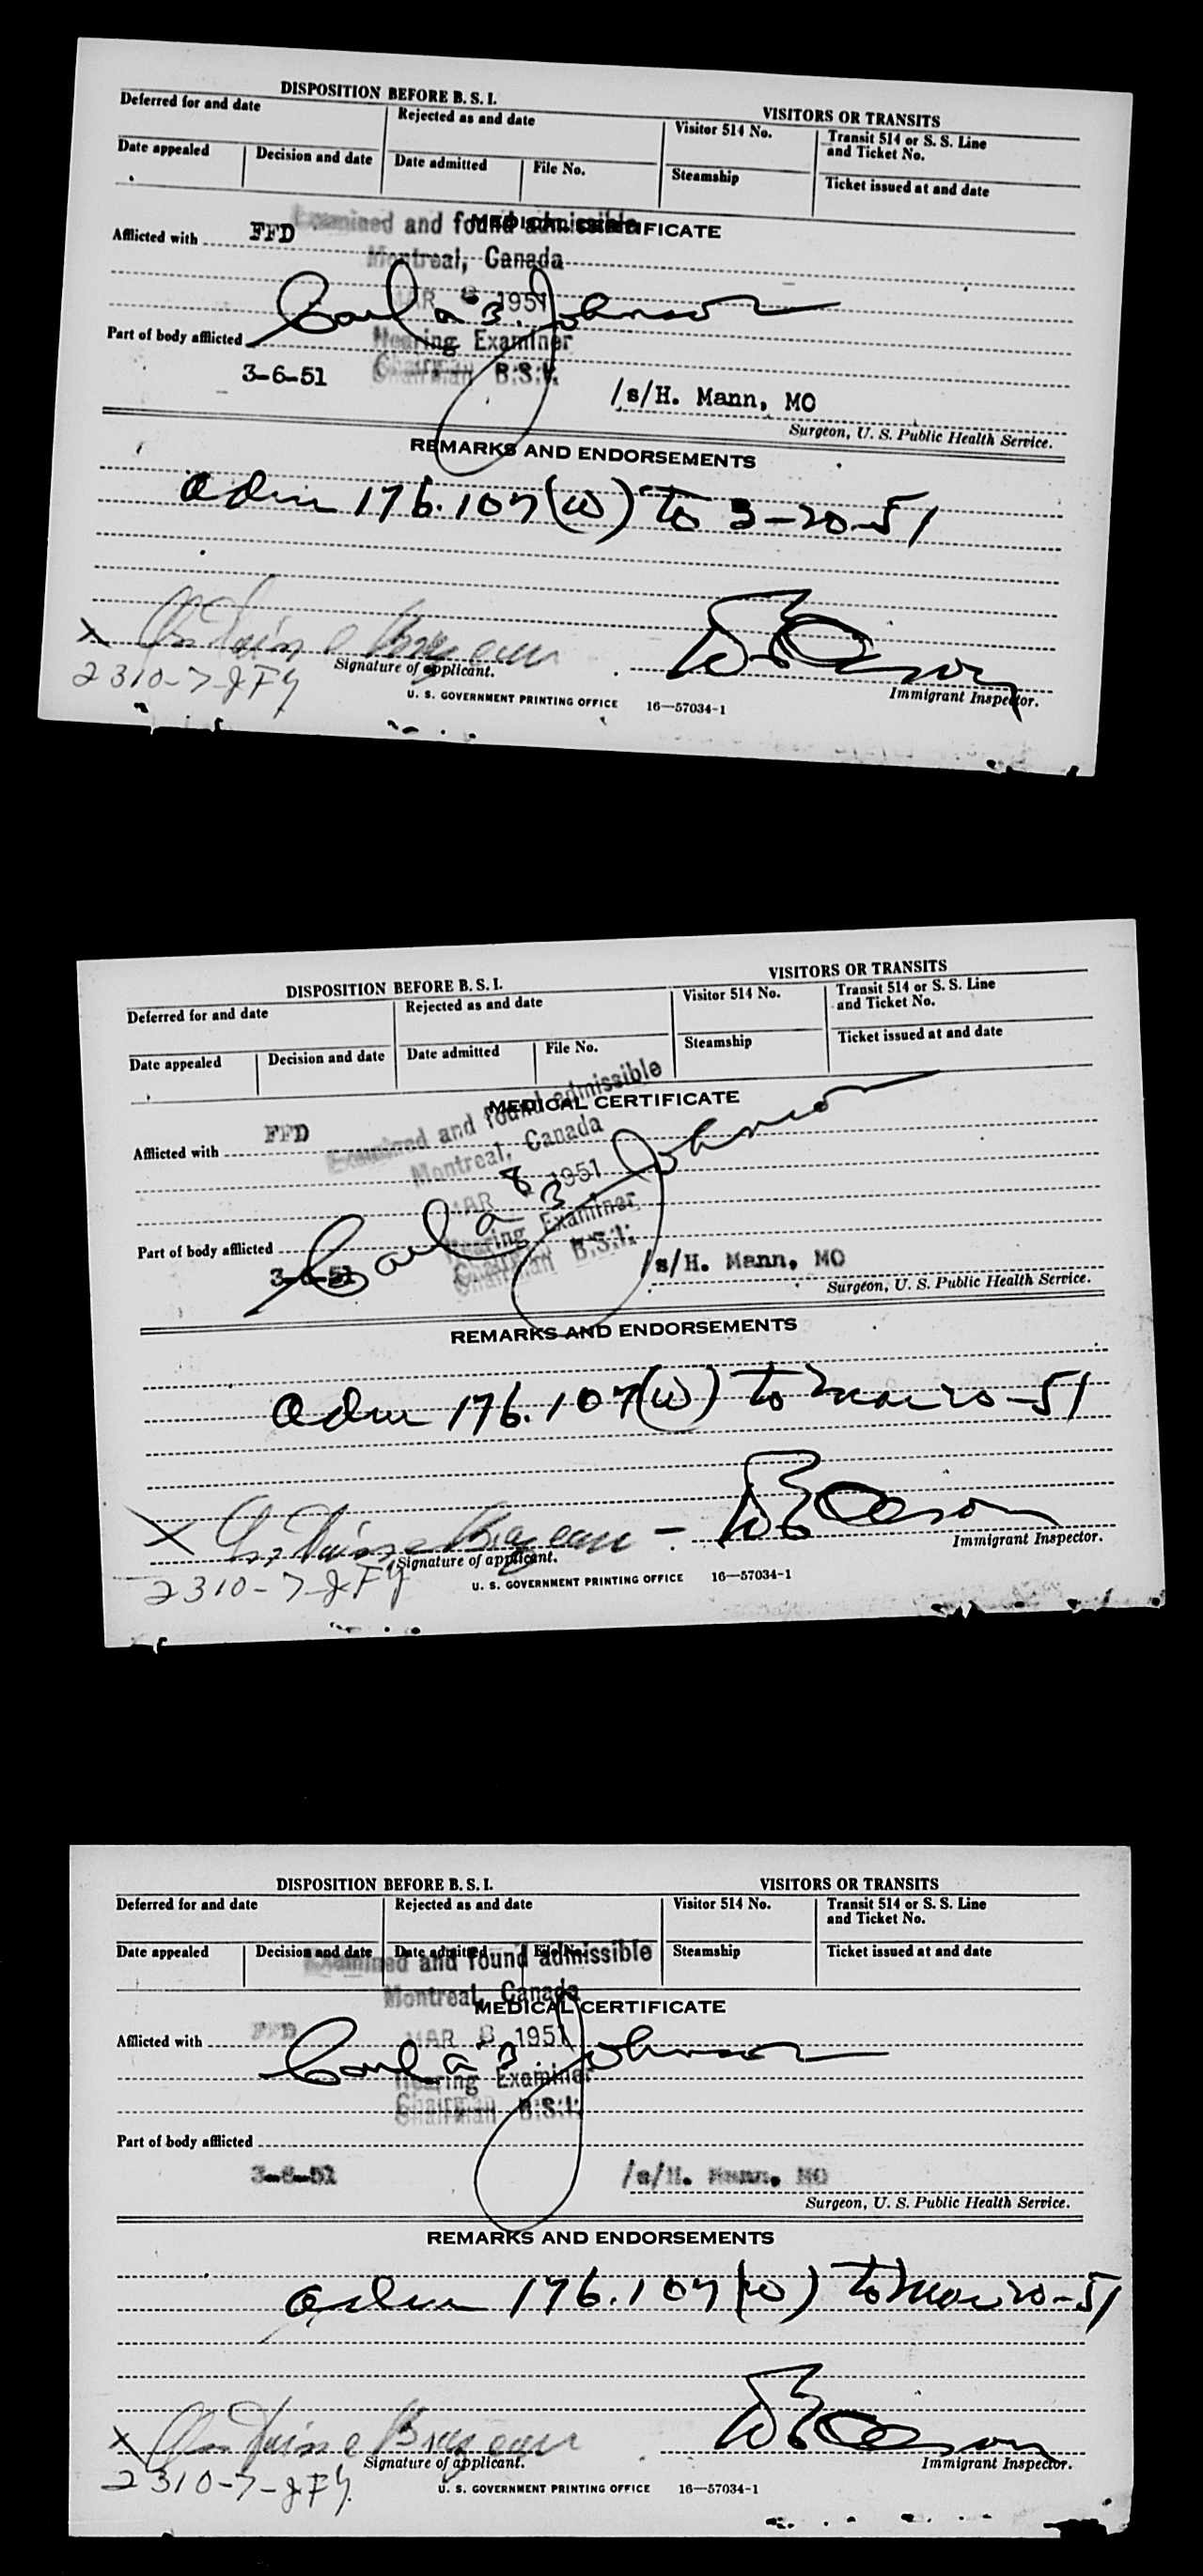 DISPOSITION BEFORE B. S. I.
VISITORS OR TRANSITS
Deferred for and date
Rejected as and date
Visitor 514 No.
Transit 514 or S. S. Line
and Ticket No.
Date appealed
Decision and date
Date admitted
File No.
Steamship
Ticket issued at and date
Examined and found admissible
MEDICAL CERTIFICATE
Afflicted with
FFD
Montreal, Canada
MAR 8 1951
Carl a B. Johnson
Hearing Examiner
Part of body afflicted
Chairman B.S.I.
3-6-51
/s/H. Mann, MO
Surgeon, U. S. Public Health Service.
REMARKS AND ENDORSEMENTS
adm 176.107(w) to 3-20-51
X Antoine
Signature of applicant.
Immigrant Inspector.
2310-7-
U. S. GOVERNMENT PRINTING OFFICE 16—57034-1
DISPOSITION BEFORE B. S. I.
VISITORS OR TRANSITS
Deferred for and date
Rejected as and date
Visitor 514 No.
Transit 514 or S. S. Line
and Ticket No.
Date appealed
Decision and date
Date admitted
File No.
Steamship
Ticket issued at and date
Examined and found admissible
MEDICAL CERTIFICATE
Afflicted with
FFD
Montreal, Canada
MAR 8 1951
Carl a B. Johnson
Hearing Examiner
Part of body afflicted
Chairman B.S.I.
3-6-51
/s/H. Mann, MO
Surgeon, U. S. Public Health Service.
REMARKS AND ENDORSEMENTS
adm 176.107(w) to Mar 20-51
X Antoine
Signature of applicant.
Immigrant Inspector.
2310-7-
U. S. GOVERNMENT PRINTING OFFICE 16—57034-1
DISPOSITION BEFORE B. S. I.
VISITORS OR TRANSITS
Deferred for and date
Rejected as and date
Visitor 514 No.
Transit 514 or S. S. Line
and Ticket No.
Date appealed
Decision and date
Date admitted
File No.
Steamship
Ticket issued at and date
Examined and found admissible
Montreal, Canada
MEDICAL CERTIFICATE
Afflicted with
FFD
MAR 8 1951
Carl a B. Johnson
Hearing Examiner
Chairman B.S.I.
Part of body afflicted
3-6-51
/s/H. Mann, MO
Surgeon, U. S. Public Health Service.
REMARKS AND ENDORSEMENTS
adm 176.107(w) to Mar 20-51
X Antoine
Signature of applicant.
Immigrant Inspector.
2310-7-
U. S. GOVERNMENT PRINTING OFFICE 16—57034-1